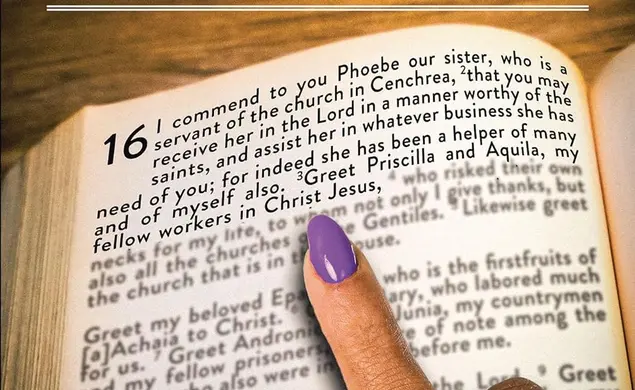 16 I commend to you Phoebe our sister, who is a
servant of the church in Cenchrea, ²that you may
receive her in the Lord in a manner worthy of the
saints, and assist her in whatever business she has
need of you; for indeed she has been a helper of many
and of myself also. ³Greet Priscilla and Aquila, my
fellow workers in Christ Jesus, ⁴ who risked their own
necks for my life, to not only I give thanks, but
also all the churches the Gentiles. Likewise greet
the church that is in
Greet my beloved who is the firstfruits of
[a]Achaia to Christ. who labored much
for us. ⁷ Greet my countrymen
my fellow prisoners, of note among the
who also were in before me.
the Lord. ⁹ Greet